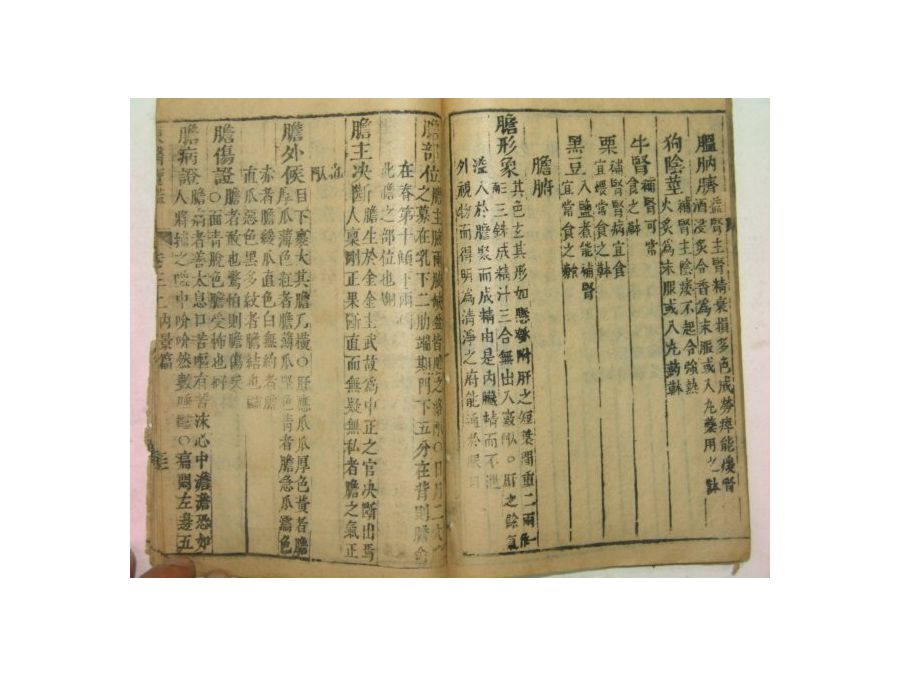 膃肭臍
益腎主腎精衰損多色成勞瘁能煖腎
酒浸炙令香爲末服或入丸藥用之
狗陰莖
補腎主陰痿不起令強熱
火炙爲末服或入丸藥
牛腎
補腎可常
食之
栗
補腎腎病宜食
宜煨常食之
黑豆
入鹽煮能補腎
宜常食之
膽腑
膽形象
其色玄其形如懸附肝之短葉間重二兩
三銖成精汁三合無出入竅肝之餘氣
溢入於膽聚而成精由是內臟精而不
外視物而得明爲清淨之府能通於眼目
膽部位
之募在乳下二肋端期門下五分在背則膽俞
在脊第十顀下兩
此膽之部位也
膽主决斷
膽生於金金主武故爲中正之官决斷出焉
人禀剛正果斷直而無疑無私者膽之氣正
膽外候
目下裹大其膽乃橫○肝應爪爪厚色黃者膽
厚爪薄色紅者膽薄爪堅色青者膽急爪濡色
赤者膽緩爪直色白無約者膽
直爪惡色黑多紋者膽結也
膽傷證
膽者敢也驚怕則膽傷矣
○面青脫色膽受怖也
膽病證
膽病者善太息口苦嘔有苦汁心中澹澹恐如
人將捕之嗌中吤吤然數唾○痛悶左邊五